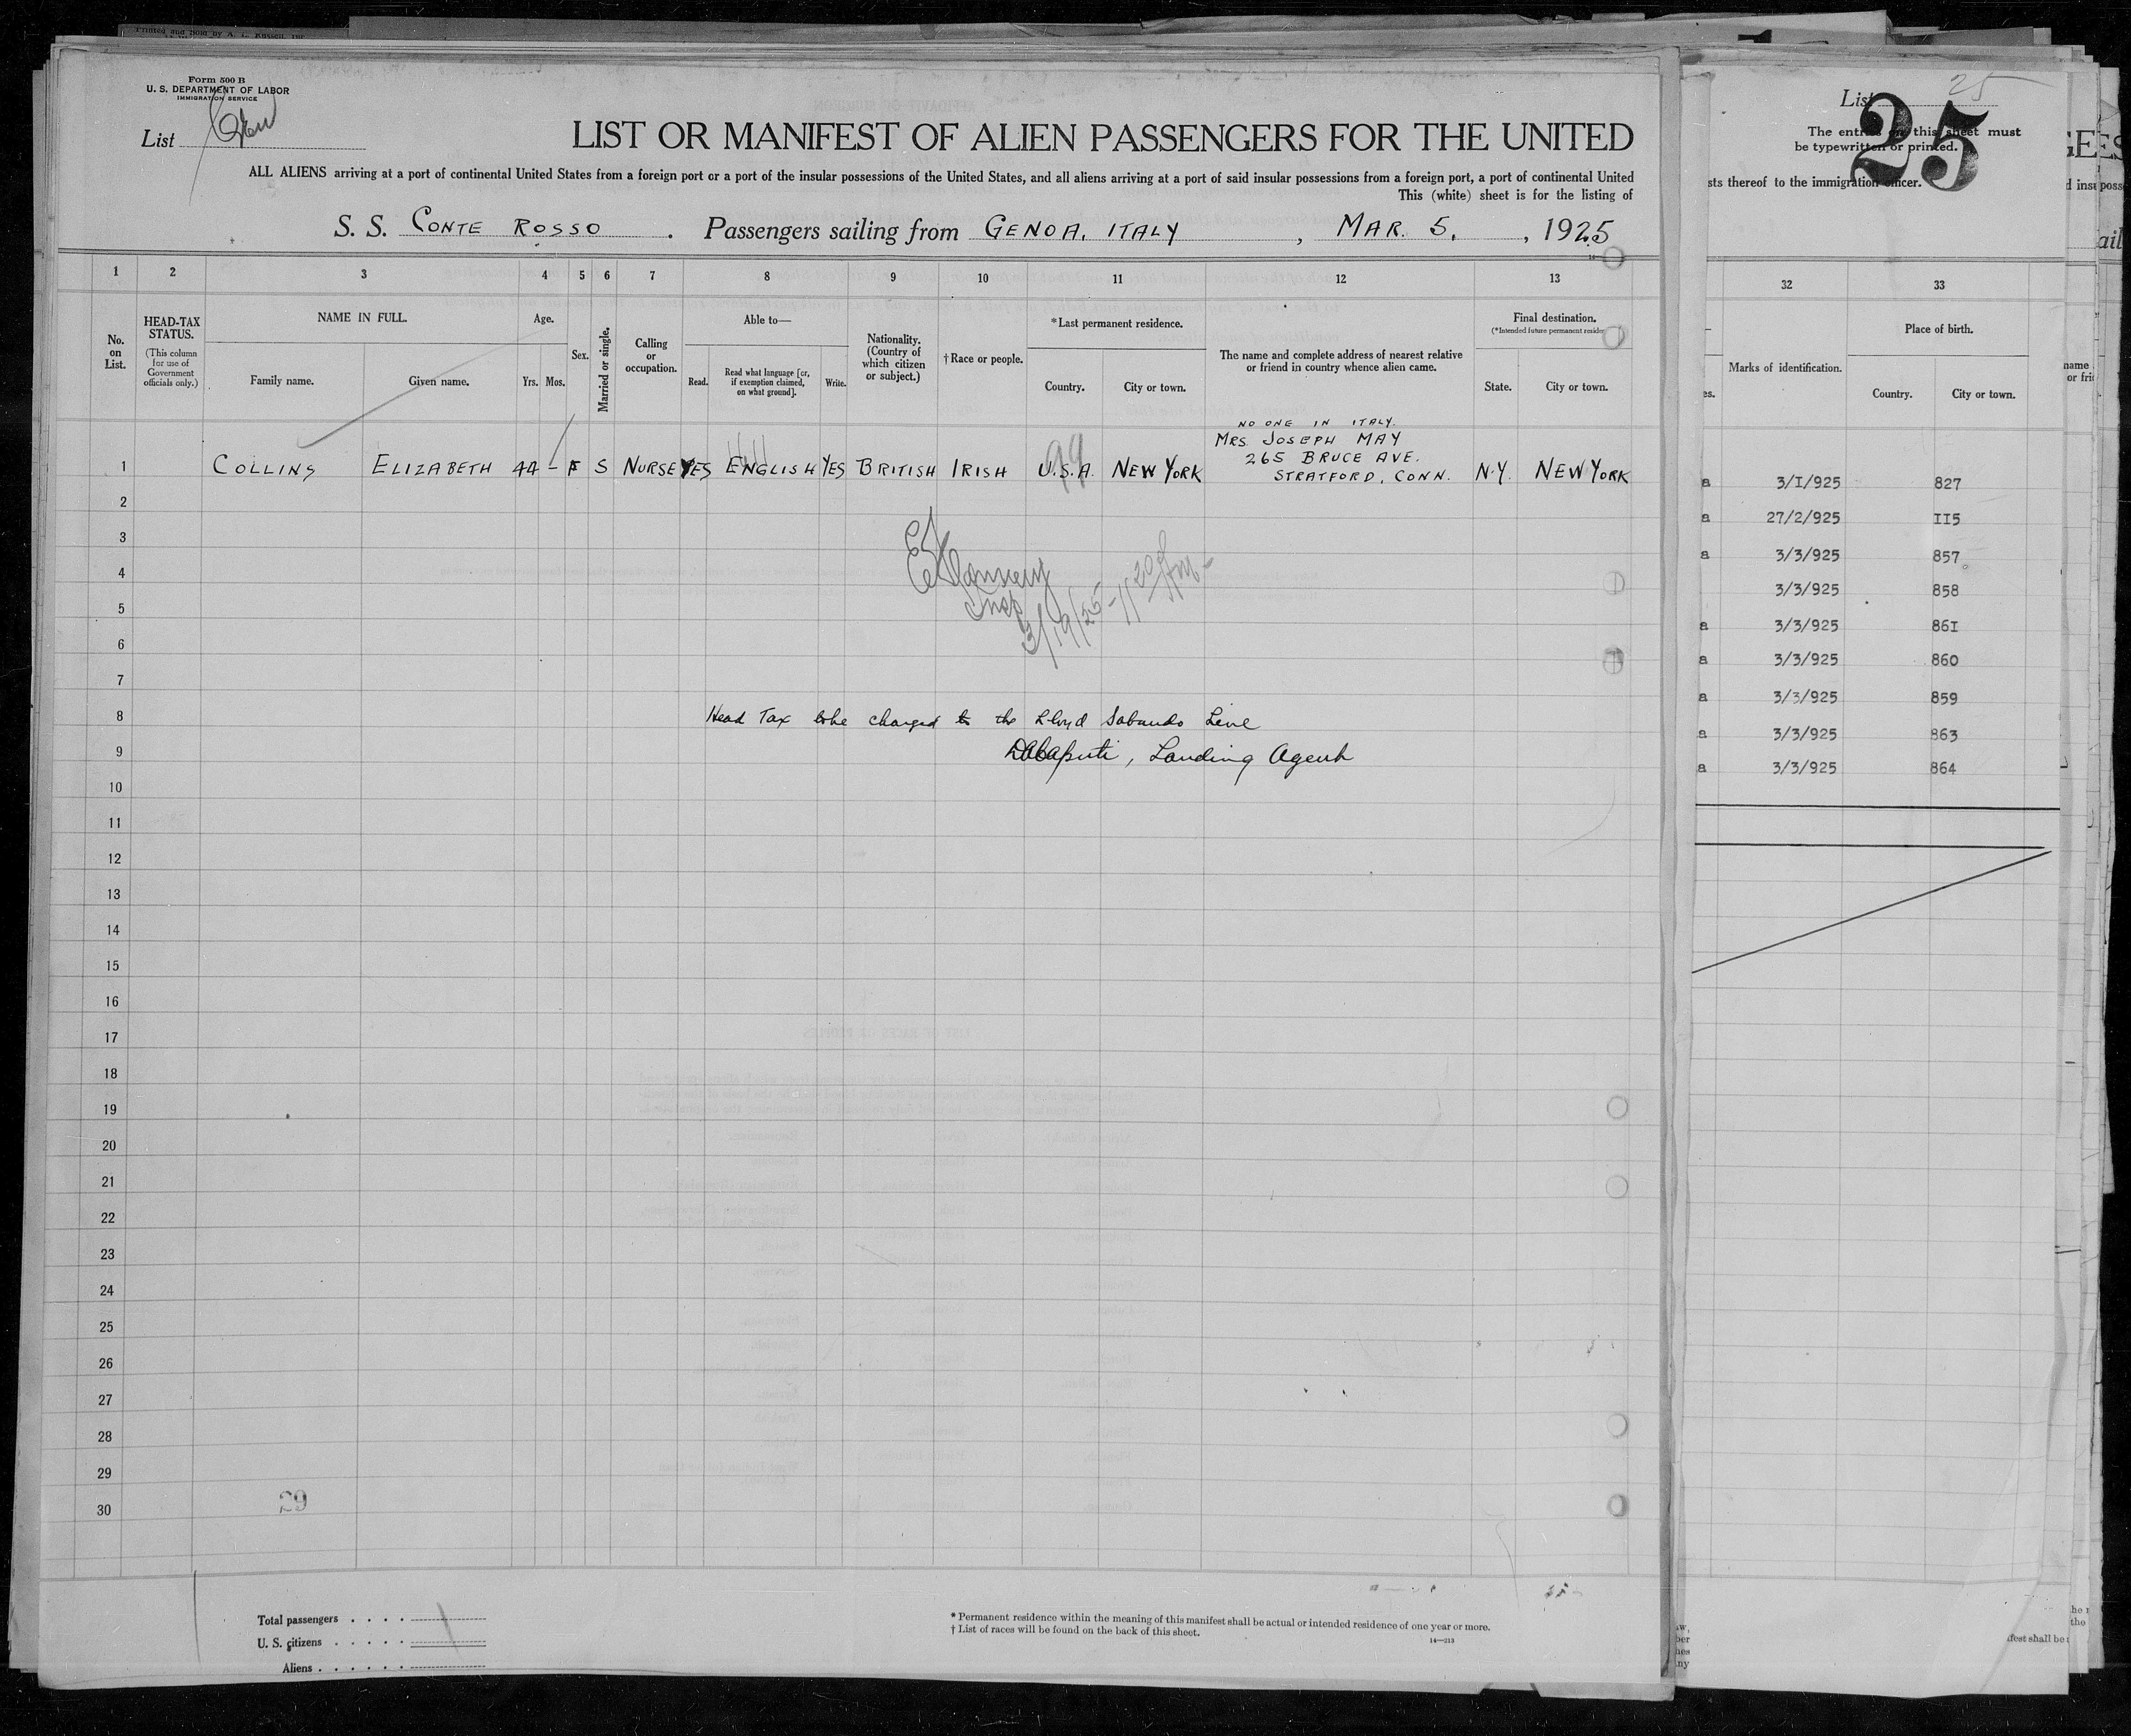 Printed and Sold by A. L. Russell, Inc.
Form 500 B
U. S. DEPARTMENT OF LABOR
IMMIGRATION SERVICE
List
LIST OR MANIFEST OF ALIEN PASSENGERS FOR THE UNITED
ALL ALIENS arriving at a port of continental United States from a foreign port or a port of the insular possessions of the United States, and all aliens arriving at a port of said insular possessions from a foreign port, a port of continental United
This (white) sheet is for the listing of
S. S. CONTE ROSSO . Passengers sailing from GENOA, ITALY , MAR. 5, , 1925
1 2 3 4 5 6 7 8 9 10 11 12 13
No. on List.
HEAD-TAX STATUS.
(This column for use of Government officials only.)
NAME IN FULL.
Family name. Given name.
Age.
Yrs. Mos.
Sex.
Married or single.
Calling or occupation.
Able to—
Read. Read what language [or, if exemption claimed, on what ground]. Write.
Nationality. (Country of which citizen or subject.)
†Race or people.
*Last permanent residence.
Country. City or town.
The name and complete address of nearest relative or friend in country whence alien came.
Final destination.
(*Intended future permanent residen
State. City or town.
NO ONE IN ITALY.
MRS JOSEPH MAY
265 BRUCE AVE.
STRATFORD, CONN.
1 COLLINS ELIZABETH 44 - F S NURSE YES ENGLISH YES BRITISH IRISH U.S.A. NEW YORK N.Y. NEW YORK
2
3
4
5
6
7
8
9
10
11
12
13
14
15
16
17
18
19
20
21
22
23
24
25
26
27
28
29
30
Insp
3/19/25 - 11
Head Tax to be charged to the Lloyd Sabaudo Line
, Landing Agent
29
Total passengers . . . . 1
U. S. citizens . . . . .
Aliens . . . . . .
* Permanent residence within the meaning of this manifest shall be actual or intended residence of one year or more.
† List of races will be found on the back of this sheet.
14—213
25
List
25
The entries on this sheet must
be typewritten or printed.
sts thereof to the immigration officer.
32 33
Marks of identification.
Place of birth.
Country. City or town.
es.
a 3/I/925 827
a 27/2/925 II5
a 3/3/925 857
3/3/925 858
a 3/3/925 86I
a 3/3/925 860
a 3/3/925 859
a 3/3/925 863
a 3/3/925 864
GEES
d ins
poss
ail
name
or frie
ifest shall be